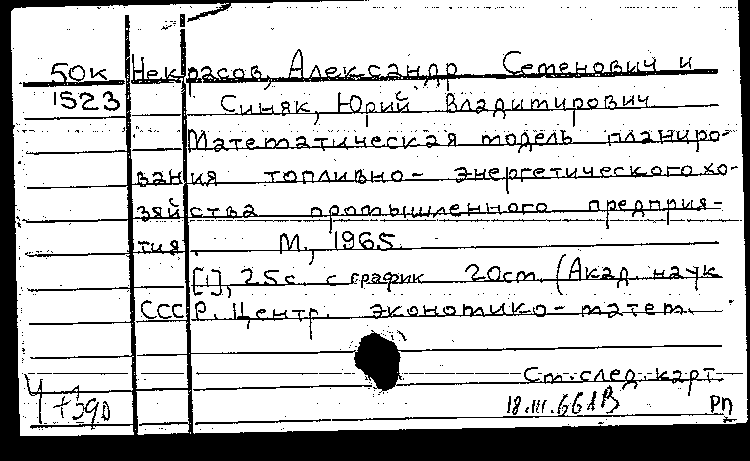 50к Некрасов, Александр Семенович и
1523 Синяк, Юрий Владимирович
Математическая модель планиро-
вания топливно- энергетического хо-
зяйства промышленного предприя-
тия. М., 1965.
[1], 25 с. с график 20 cm. (Акад. наук
СССР. Центр. экономико- матем.
См. след. карт.
18.III.66 РП